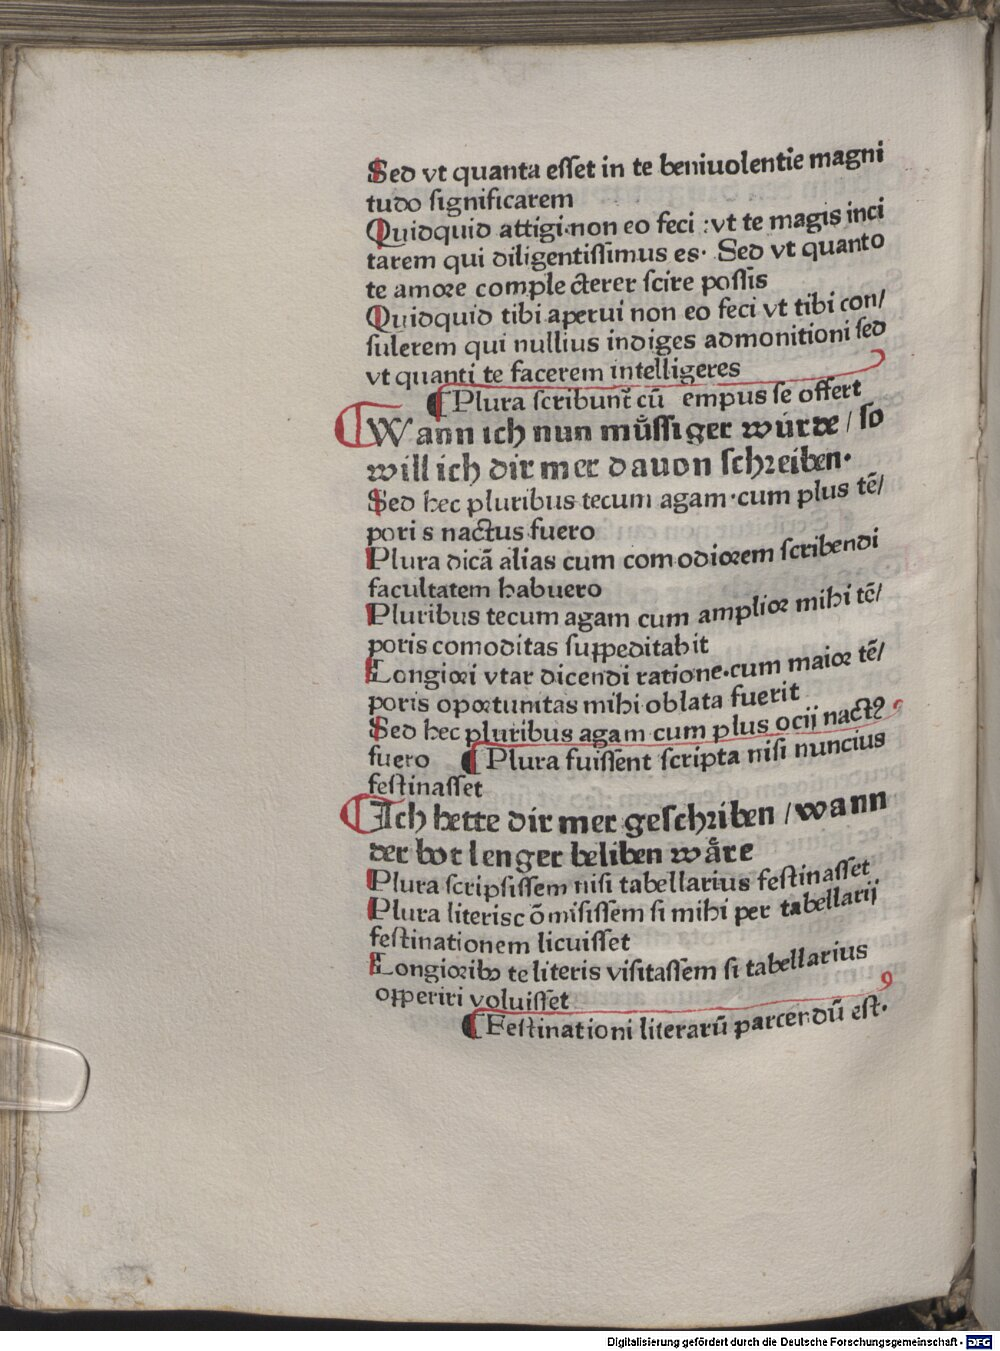 Sed vt quanta esset in te beniuolentie magni
tudo significarem
Quidquid attigi·non eo feci :vt te magis inci
tarem qui diligentissimus es· Sed vt quanto
te amore comple cterer scire possis
Quidquid tibi aperui non eo feci vt tibi con/
sulerem qui nullius indiges admonitioni sed
vt quanti te facerem intelligeres
¶ Plura scribunt᷑ cū empus se offert
Wann ich nun mu̇ssiger wúrde / so
will ich dir mer dauon schreiben·
Sed hec pluribus tecum agam·cum plus tē/
pori s nactus fuero
Plura dicā alias cum comodiorem scribendi
facultatem habuero
Pluribus tecum agam cum amplior mihi tē/
poris comoditas suppeditabit
Longiori vtar dicendi ratione·cum maior tē/
poris oportunitas mihi oblata fuerit
Sed hec pluribus agam cum plus ocij nactꝰ
fuero ¶ Plura fuissent scripta nisi nuncius
festinasset
Ich hette dir mer geschriben / wann
der bot lenger beliben wåre
Plura scripsissem nisi tabellarius festinasset
Plura literis c ōmisissem si mihi per tabellarij
festinationem licuisset
Longioribꝯ te literis visitassem si tabellarius
opperiri voluisset
¶ Festinationi literarū parcendū est·
Digitalisierung gefördert durch die Deutsche Forschungsgemeinschaft - DFG